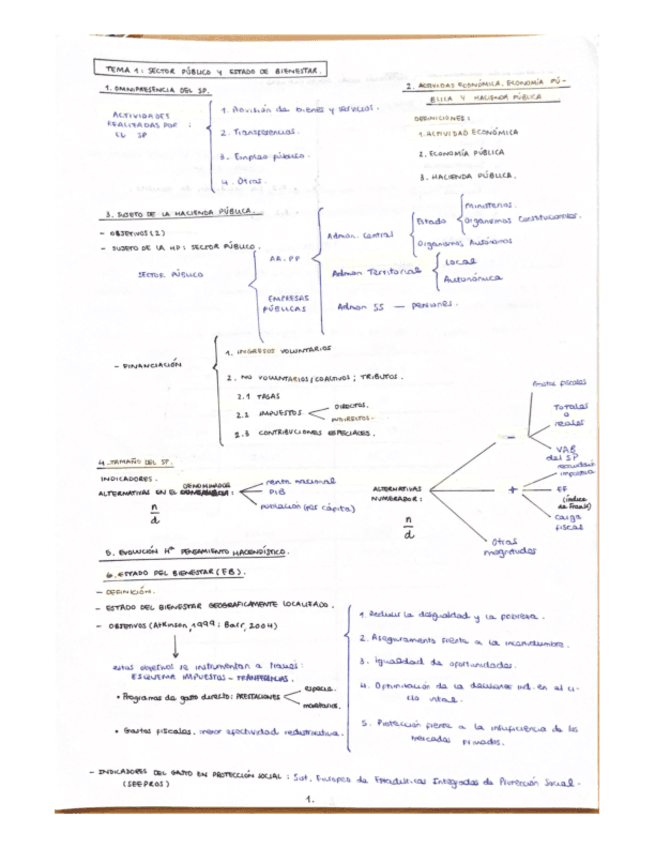 TEMA 1: SECTOR PÚBLICO Y ESTADO DE BIENESTAR.
1. OMNIPRESENCIA DEL SP.
ACTIVIDADES
REALIZADAS POR :
EL SP
1. Provisión de bienes y servicios.
2. Transferencias.
3. Empleo público.
4. Otras.
2. ACTIVIDAD ECONÓMICA, ECONOMÍA PÚ-
BLICA Y HACIENDA PÚBLICA
DEFINICIONES:
1. ACTIVIDAD ECONÓMICA
2. ECONOMÍA PÚBLICA
3. HACIENDA PÚBLICA.
3. SUJETO DE LA HACIENDA PÚBLICA.
- OBJETIVOS (2)
- SUJETO DE LA HP: SECTOR PÚBLICO.
SECTOR PÚBLICO
AA.PP
EMPRESAS
PÚBLICAS
Admon. Central
Estado
Ministerios.
Organismos Constitucionales.
Organismos Autónomos
Admon Territorial
Local
Autonómica
Admon SS — pensiones.
- FINANCIACIÓN
1. INGRESOS VOLUNTARIOS
2. NO VOLUNTARIOS/COACTIVOS; TRIBUTOS.
2.1 TASAS
2.2 IMPUESTOS
DIRECTOS.
INDIRECTOS.
2.3 CONTRIBUCIONES ESPECIALES.
4. TAMAÑO DEL SP.
INDICADORES.
ALTERNATIVAS EN EL DENOMINADOR:
n
d
renta nacional
PIB
población (per cápita)
ALTERNATIVAS
NUMERADOR:
n
d
-
Gastos fiscales
Totales
o
reales
VAB
del SP
+
recaudación
impositiva
EF
(índice
de Frank)
Carga
fiscal
Otras
magnitudes
5. EVOLUCIÓN Hª PENSAMIENTO HACENDÍSTICO.
6. ESTADO DEL BIENESTAR (EB).
- DEFINICIÓN.
- ESTADO DEL BIENESTAR GEOGRAFICAMENTE LOCALIZADO.
- OBJETIVOS (Atkinson, 1999; Barr, 2004)
estos objetivos se instrumentan a través:
ESQUEMA IMPUESTOS - TRANSFERENCIAS.
• Programas de gasto directo: PRESTACIONES
especie.
monetarios.
• Gastos fiscales, menor efectividad redistributiva.
1. Reducir la desigualdad y la pobreza.
2. Aseguramiento frente a la incertidumbre.
3. igualdad de oportunidades.
4. Optimización de la decisiones ind. en el ci-
clo vital.
5. Protección frente a la insuficiencia de los
mercados privados.
- INDICADORES DEL GASTO EN PROTECCIÓN SOCIAL: Sist. Europeo de Estadísticas Integradas de Protección Social.
(SEEPROS)
1.